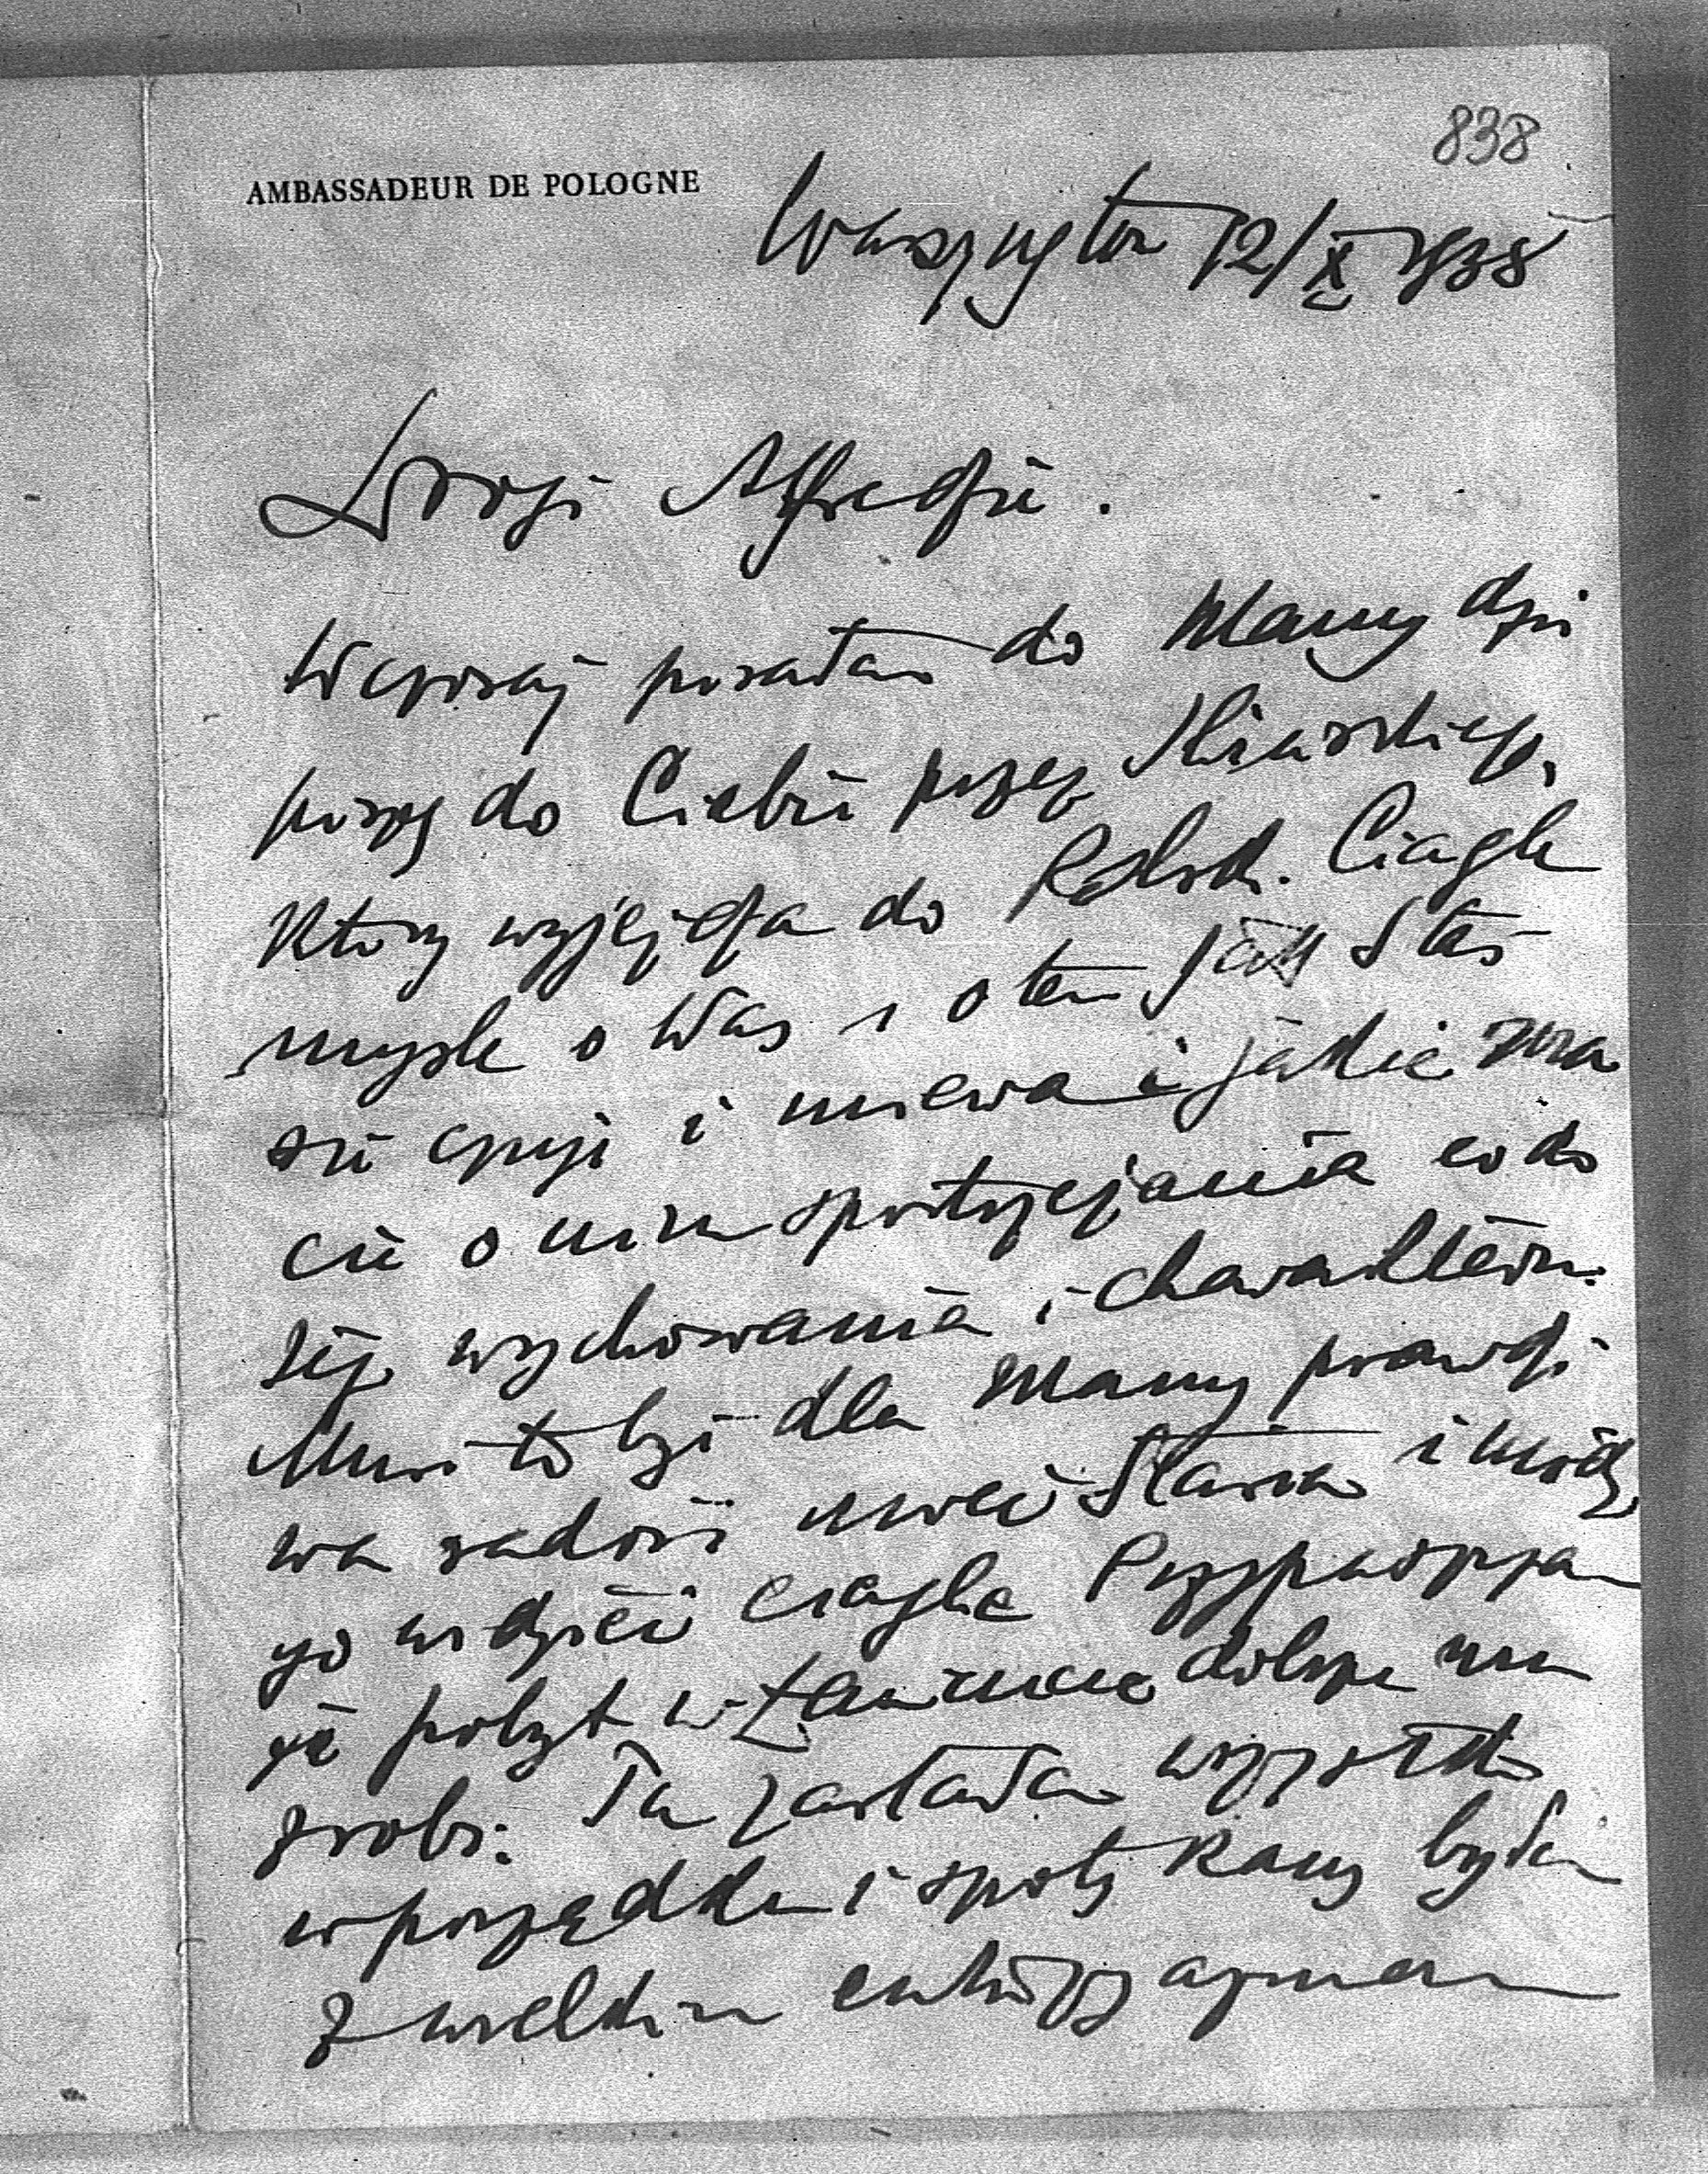 838
AMBASSADEUR DE POLOGNE
Waszyngton 12/X 1938
Drogi Alfredzie.
Wczoraj pisałam do Mamy dziś
piszę do Ciebie przez
który wyjeżdża do Polski. Ciągle
myślę o Was i o tem jak Staś
się czuje i miewa i jakie ma
cie o nim spostrzeżenia co do
jego wychowania i charakteru.
Musi to być dla Mamy prawdzi
wa radość mieć Stasia i módz
go widzieć ciągle Przypuszczam
że pobyt w Łańcucie dobrze mu
zrobi. Tu zastałam wszystko
w porządku i spotykany byłam
z wielkim entuzjazmem